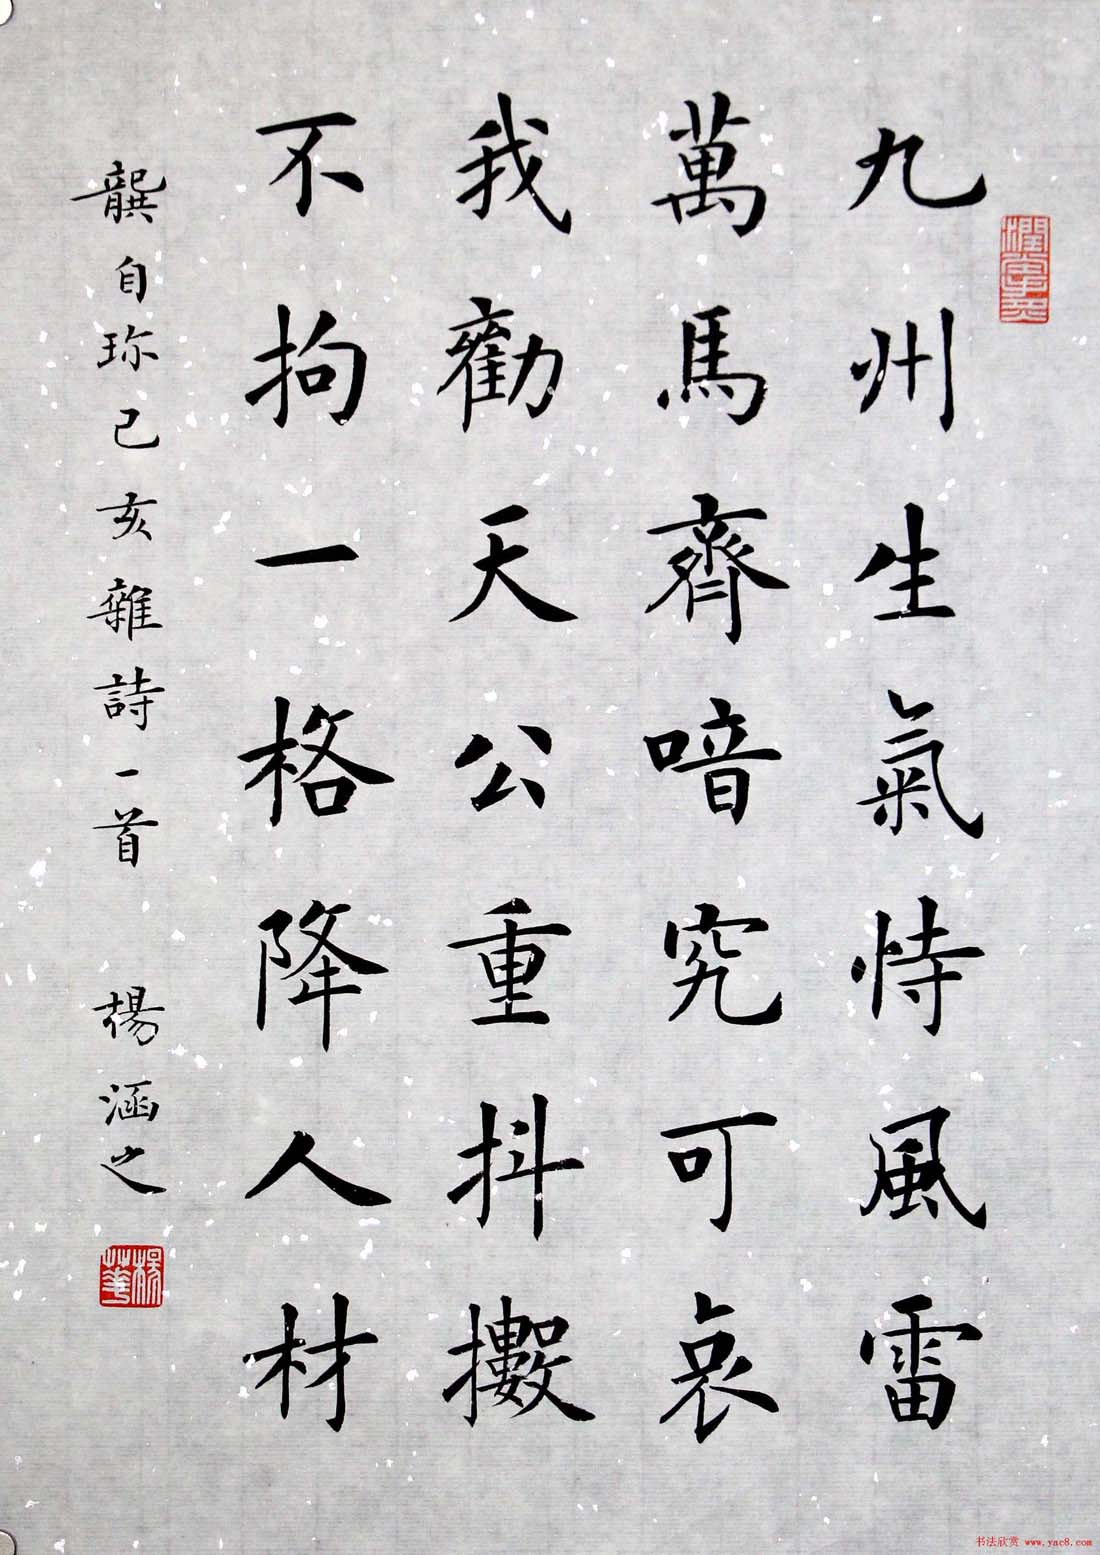 九州生氣恃風雷
萬馬齊喑究可哀
我勸天公重抖擻
不拘一格降人材
龔自珍己亥雜詩一首 楊涵之
书法欣赏 www.yac8.com